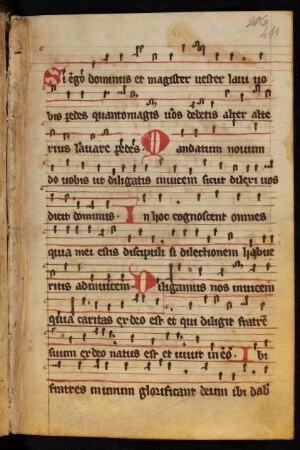 Si ego dominus et magister vester lavi vo
bis pedes quantomagis vos debetis alter alte
rius lavare pedes Mandatum novum
do vobis ut diligatis invicem sicut dilexi vos
dicit dominus In hoc cognoscent omnes
quia mei estis discipuli si dilectionem habue
ritis adinvicem Diligamus nos invicem
quia caritas ex deo est et qui diligit fratrē
suum ex deo natus est et vivit in eo Ubi
fratres in unum glorificant deum ibi dab